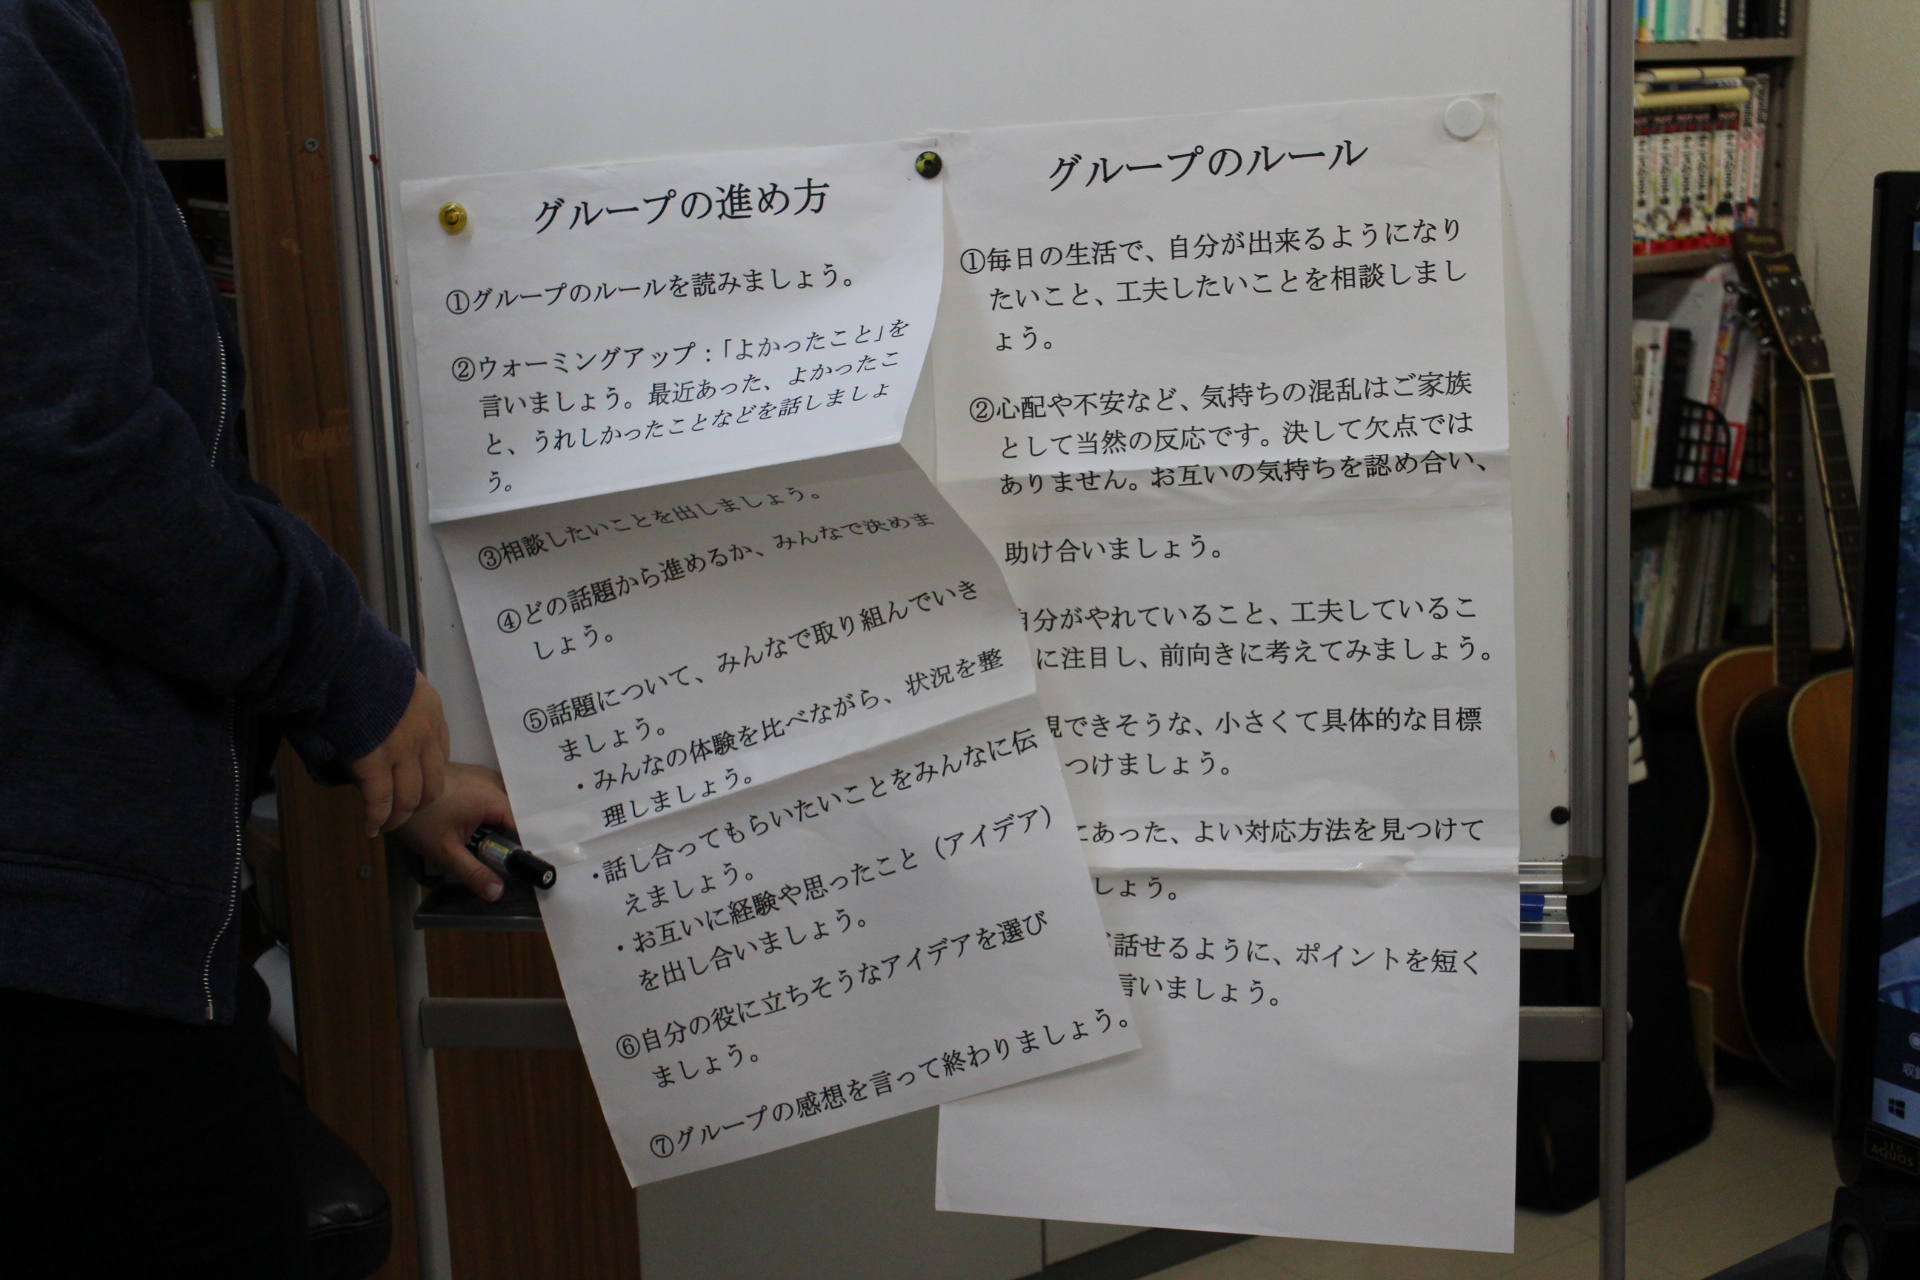 グループの進め方
①グループのルールを読みましょう。
②ウォーミングアップ：「よかったこと」を
言いましょう。最近あった、よかったこ
と、うれしかったことなどを話しましょ
う。
③相談したいことを出しましょう。
④どの話題から進めるか、みんなで決めま
しょう。
⑤話題について、みんなで取り組んでいき
ましょう。
・みんなの体験を比べながら、状況を整
理しましょう。
・話し合ってもらいたいことをみんなに伝
えましょう。
・お互いに経験や思ったこと（アイデア）
を出し合いましょう。
⑥自分の役に立ちそうなアイデアを選び
ましょう。
⑦グループの感想を言って終わりましょう。
グループのルール
①毎日の生活で、自分が出来るようになり
たいこと、工夫したいことを相談しまし
ょう。
②心配や不安など、気持ちの混乱はご家族
として当然の反応です。決して欠点では
ありません。お互いの気持ちを認め合い、
助け合いましょう。
自分がやれていること、工夫しているこ
に注目し、前向きに考えてみましょう。
現できそうな、小さくて具体的な目標
つけましょう。
にあった、よい対応方法を見つけて
しょう。
話せるように、ポイントを短く
言いましょう。
AQUOS